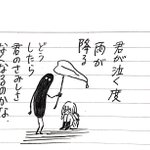 君が泣く度
雨が
降る
どう
したら
君のさみしさ
なくなるのかな。